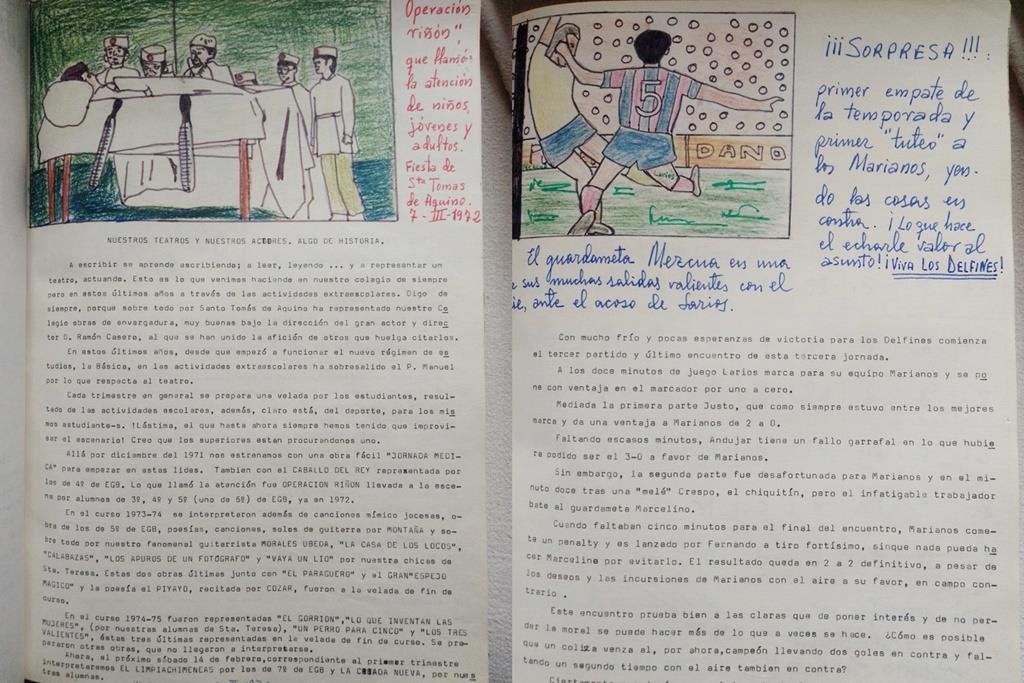 "Operación
riñón",
que llamó
la atención
de niños,
jóvenes y
adultos.
Fiesta de
Sto Tomas
de Aquino.
7-III-1972
NUESTROS TEATROS Y NUESTROS ACTORES. ALGO DE HISTORIA.
A escribir se aprende escribiendo; a leer, leyendo ... y a representar un
teatro, actuando. Esto es lo que venimos haciendo en nuestro colegio de siempre
pero en estos últimos años a través de las actividades extraescolares. Digo de
siempre, porque sobre todo por Santo Tomás de Aquino ha representado nuestro Co
legio obras de envergadura, muy buenas bajo la dirección del gran actor y direc
ter D. Ramón Casero, al que se han unido la afición de otros que huelga citarlos.
En estos últimos años, desde que empezó a funcionar el nuevo régimen de es
tudios, la Básica, en las actividades extraescolares ha sobresalido el P. Manuel
por lo que respecta al teatro.
Cada trimestre en general se prepara una velada por los estudiantes, resul-
tado de las actividades escolares, además, claro está, del deporte, para los mis
mos estudiante-s. !Lástima, el que hasta ahora siempre hemos tenido que improvi-
sar el escenario! Creo que los superiores estan procurandonos uno.
Allá por diciembre del 1971 nos estrenamos con una obra fácil "JORNADA MEDI-
CA" para empezar en estas lides. Tambien con el CABALLO DEL REY representada por
los de 4º de EGB. Lo que llamó la atención fue OPERACION RIÑON llevada a la esce-
na por alumnos de 3º, 4º y 5º (uno de 6º) de EGB, ya en 1972.
En el curso 1973-74 se interpretaron además de canciones mímico jocosas, o-
bra de los de 5º de EGB, poesías, canciones, solos de guitarra por MONTAÑA y so-
bre todo por nuestro fenomenal guitarrista MORALES UBEDA, "LA CASA DE LOS LOCOS",
"CALABAZAS", "LOS APUROS DE UN FOTOGRAFO" y "VAYA UN LIO" por nuestra chicas de
Sta. Teresa. Estas dos obras últimas junto con "EL PARAGUERO" y el GRAN"ESPEJO
MAGICO" y la poesía el PIYAYO, recitada por COZAR, fueron a la velada de fin de
curso.
En el curso 1974-75 fueron representadas "EL GORRION","LO QUE INVENTAN LAS
MUJERES", (por nuestras alumnas de Sta. Teresa), "UN PERRO PARA CINCO" y "LOS TRES
VALIENTES", éstas tres últimas representadas en la velada de fin de curso. Se pre-
pararon otras obras, que no llegaron a interpretarse.
Ahora, el próximo sábado 14 de febrero,correspondiente al primer trimestre
interpretaremos EL LIMPIACHIMENEAS por los de 7º de EGB y LA CRIADA NUEVA, por nues
tras alumnas.
5
DANO
Larios
¡¡¡SORPRESA!!!:
primer empate de
la temporada y
primer "tuteo" a
los Marianos, yen-
do las cosas en
contra. ¡Lo que hace
el echarle valor al
asunto! ¡VIVA LOS DELFINES!
El guardameta Mezcua en una
sus muchas salidas valientes con el
ante el acoso de Larios.
Con mucho frío y pocas esperanzas de victoria para los Delfines comienza
el tercer partido y último encuentro de esta tercera jornada.
A los doce minutos de juego Larios marca para su equipo Marianos y se po
ne con ventaja en el marcador por uno a cero.
Mediada la primera parte Justo, que como siempre estuvo entre los mejores
marca y da una ventaja a Marianos de 2 a 0.
Faltando escasos minutos, Andujar tiene un fallo garrafal en lo que hubie
ra podido ser el 3-0 a favor de Marianos.
Sin embargo, la segunda parte fue desafortunada para Marianos y en el mi-
nuto doce tras una "melé" Crespo, el chiquitín, pero el infatigable trabajador
bate al guardameta Marcelino.
Cuando faltaban cinco minutos para el final del encuentro, Marianos come-
te un penalty y es lanzado por Fernando a tiro fortísimo, sinque nada pueda ha
cer Marceline por evitarlo. El resultado queda en 2 a 2 definitivo, a pesar de
los deseos y las incursiones de Marianos con el aire a su favor, en campo con-
trario .
Este encuentro prueba bien a las claras que de poner interés y de no per-
der la moral se puede hacer más de lo que a veces se hace. ¿Cómo es posible
que un colista venza al, por ahora,campeón llevando dos goles en contra y fal-
tando un segundo tiempo con el aire tambien en contra?